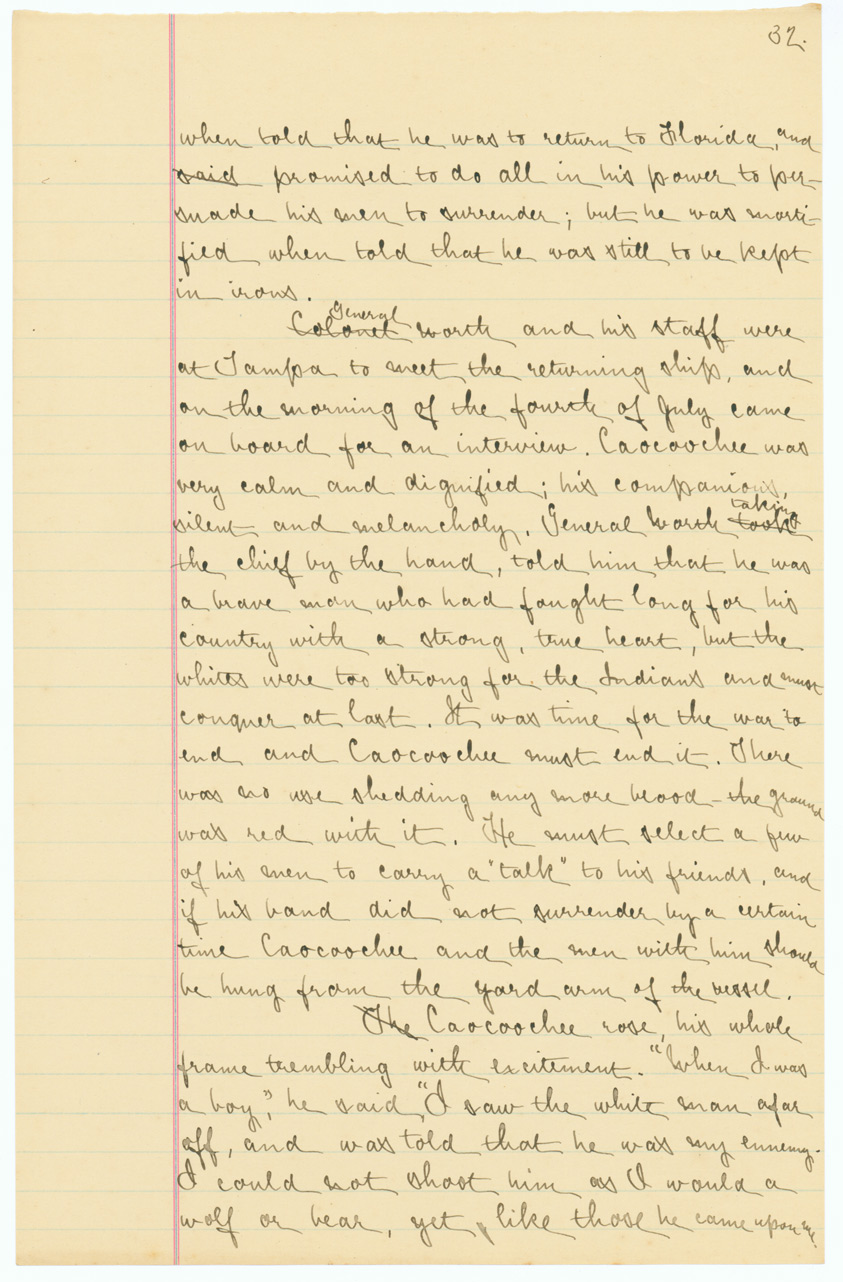 32.
when told that he was to return to Florida, and
said promised to do all in his power to per-
suade his men to surrender; but he was morti-
fied when told that he was still to be kept
in irons.
General
Colonel Worth and his staff were
at Tampa to meet the returning ship, and
on the morning of the fourth of July came
on board for an interview. Caocoochee was
very calm and dignified; his companions,
taking
silent and melancholy. General Worth took
the chief by the hand, told him that he was
a brave man who had fought long for his
country with a strong, true heart, but the
whites were too strong for the Indians and must
conquer at last. It was time for the war to
end and Caocoochee must end it. There
was no use shedding any more blood - the ground
was red with it. He must select a few
of his men to carry a "talk" to his friends, and
if his band did not surrender by a certain
time Caocoochee and the men with him should
be hung from the yard arm of the vessel.
The Caocoochee rose, his whole
frame trembling with excitement. "When I was
a boy", he said, "I saw the white man afar
off, and was told that he was my ennemy.
I could not shoot him as I would a
wolf or bear, yet like those he came upon me.